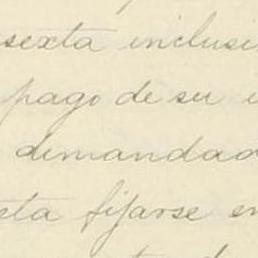 sexta inclusi
pago de su
demandad
sta fijarse en